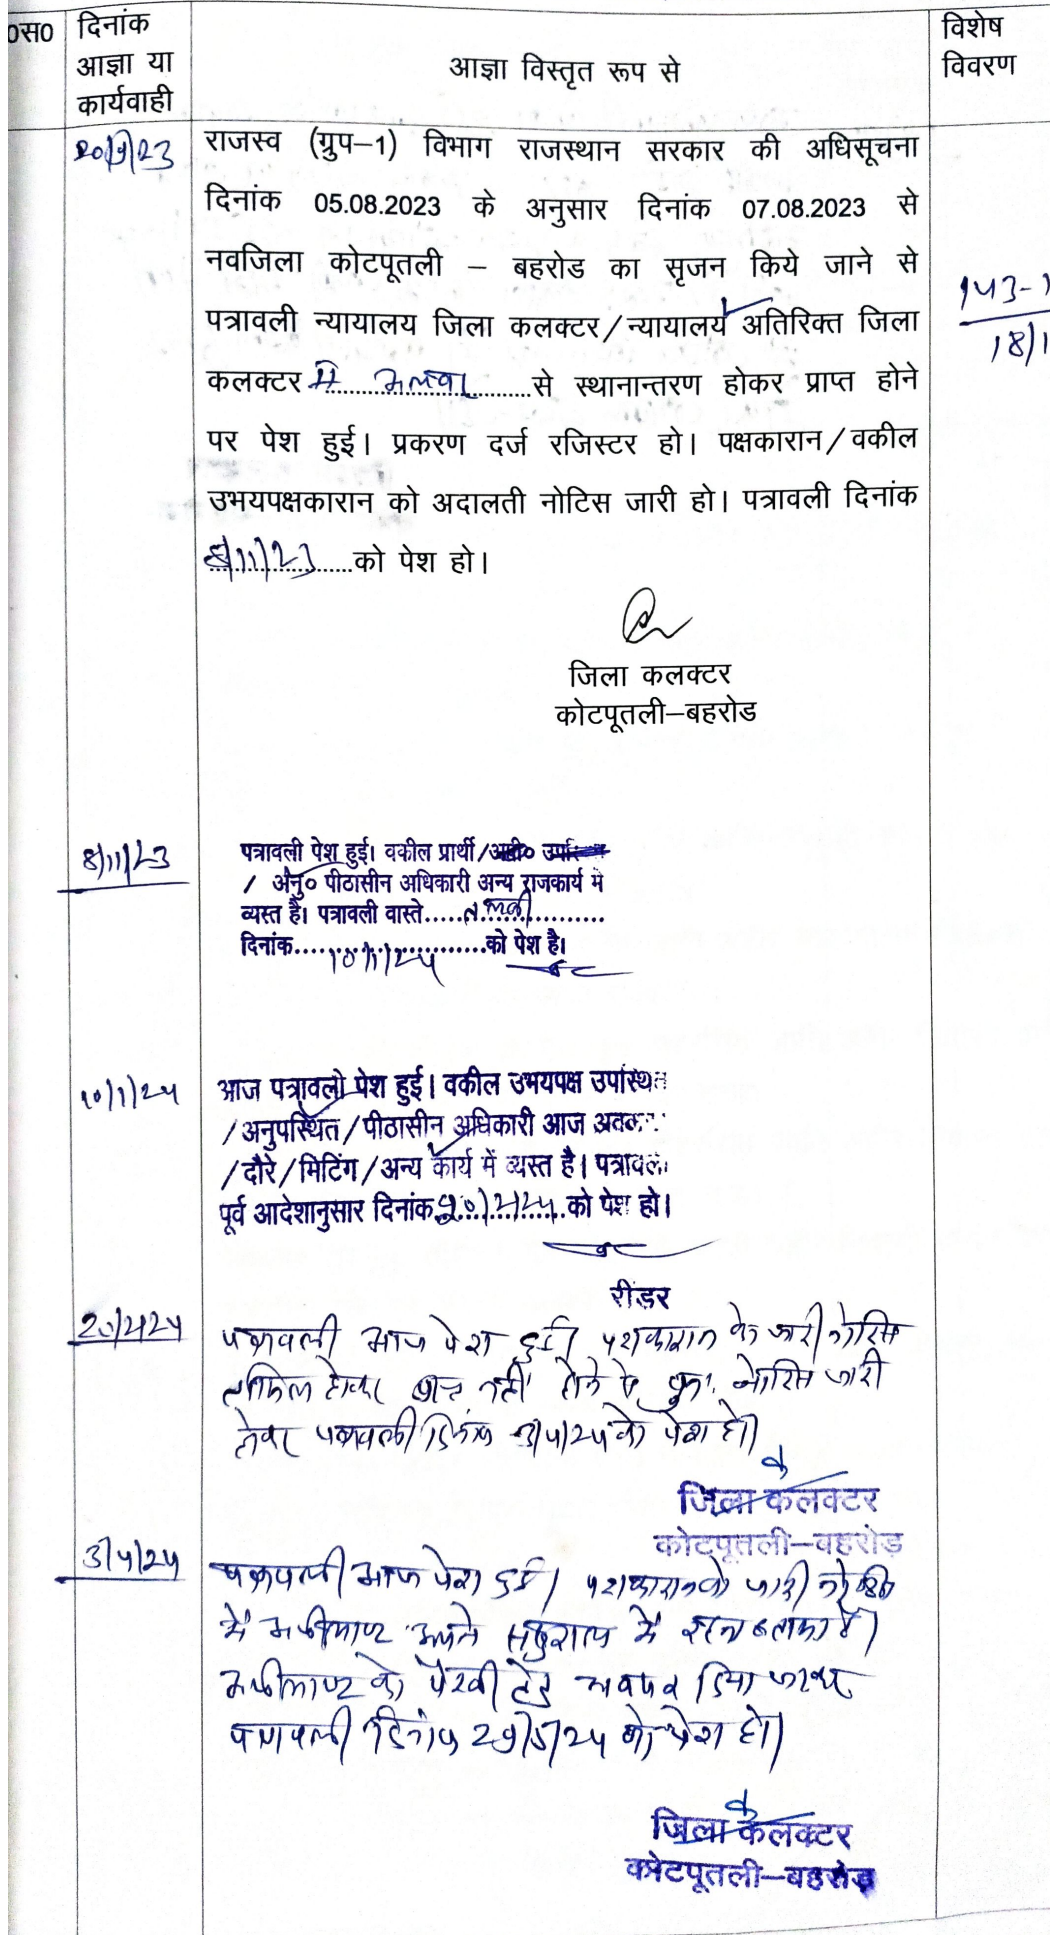 ०स०
दिनांक
आज्ञा या
कार्यवाही
आज्ञा विस्तृत रूप से
विशेष
विवरण
20/9/23
राजस्व (ग्रुप–1) विभाग राजस्थान सरकार की अधिसूचना
दिनांक 05.08.2023 के अनुसार दिनांक 07.08.2023 से
नवजिला कोटपूतली – बहरोड का सृजन किये जाने से
पत्रावली न्यायालय जिला कलक्टर/न्यायालय अतिरिक्त जिला
कलक्टर ....................से स्थानान्तरण होकर प्राप्त होने
पर पेश हुई। प्रकरण दर्ज रजिस्टर हो। पक्षकारान/वकील
उभयपक्षकारान को अदालती नोटिस जारी हो। पत्रावली दिनांक
8/11/23 को पेश हो।
जिला कलक्टर
कोटपूतली–बहरोड
8/11/23
पत्रावली पेश हुई। वकील प्रार्थी/
/ अनु० पीठासीन अधिकारी अन्य राजकार्य मे
व्यस्त है। पत्रावली वास्ते.....तलबी..........
दिनांक....10/1/24....को पेश है।
10/1/24
आज पत्रावली पेश हुई। वकील उभयपक्ष उपस्थित
/अनुपस्थित/पीठासीन अधिकारी आज
/दौरे/मिटिंग/अन्य कार्य में व्यस्त है। पत्रावली
पूर्व आदेशानुसार दिनांक 20/2/24 को पेश हो।
रीडर
20/2/24
पत्रावली आज पेश हुई। पक्षकारान को जारी नोटिस
तामिल होकर प्राप्त नही होने से पुनः नोटिस जारी
होकर पत्रावली दिनांक 3/4/24 को पेश हो।
जिला कलक्टर
कोटपूतली–बहरोड़
3/4/24
पत्रावली आज पेश हुई। पक्षकारान को जारी नोटिस
में अपने ससुराल में
को पैरवी हेतु अवसर दिया जाकर
पत्रावली दिनांक 29/5/24 को पेश हो।
जिला कलक्टर
कोटपूतली–बहरोड़